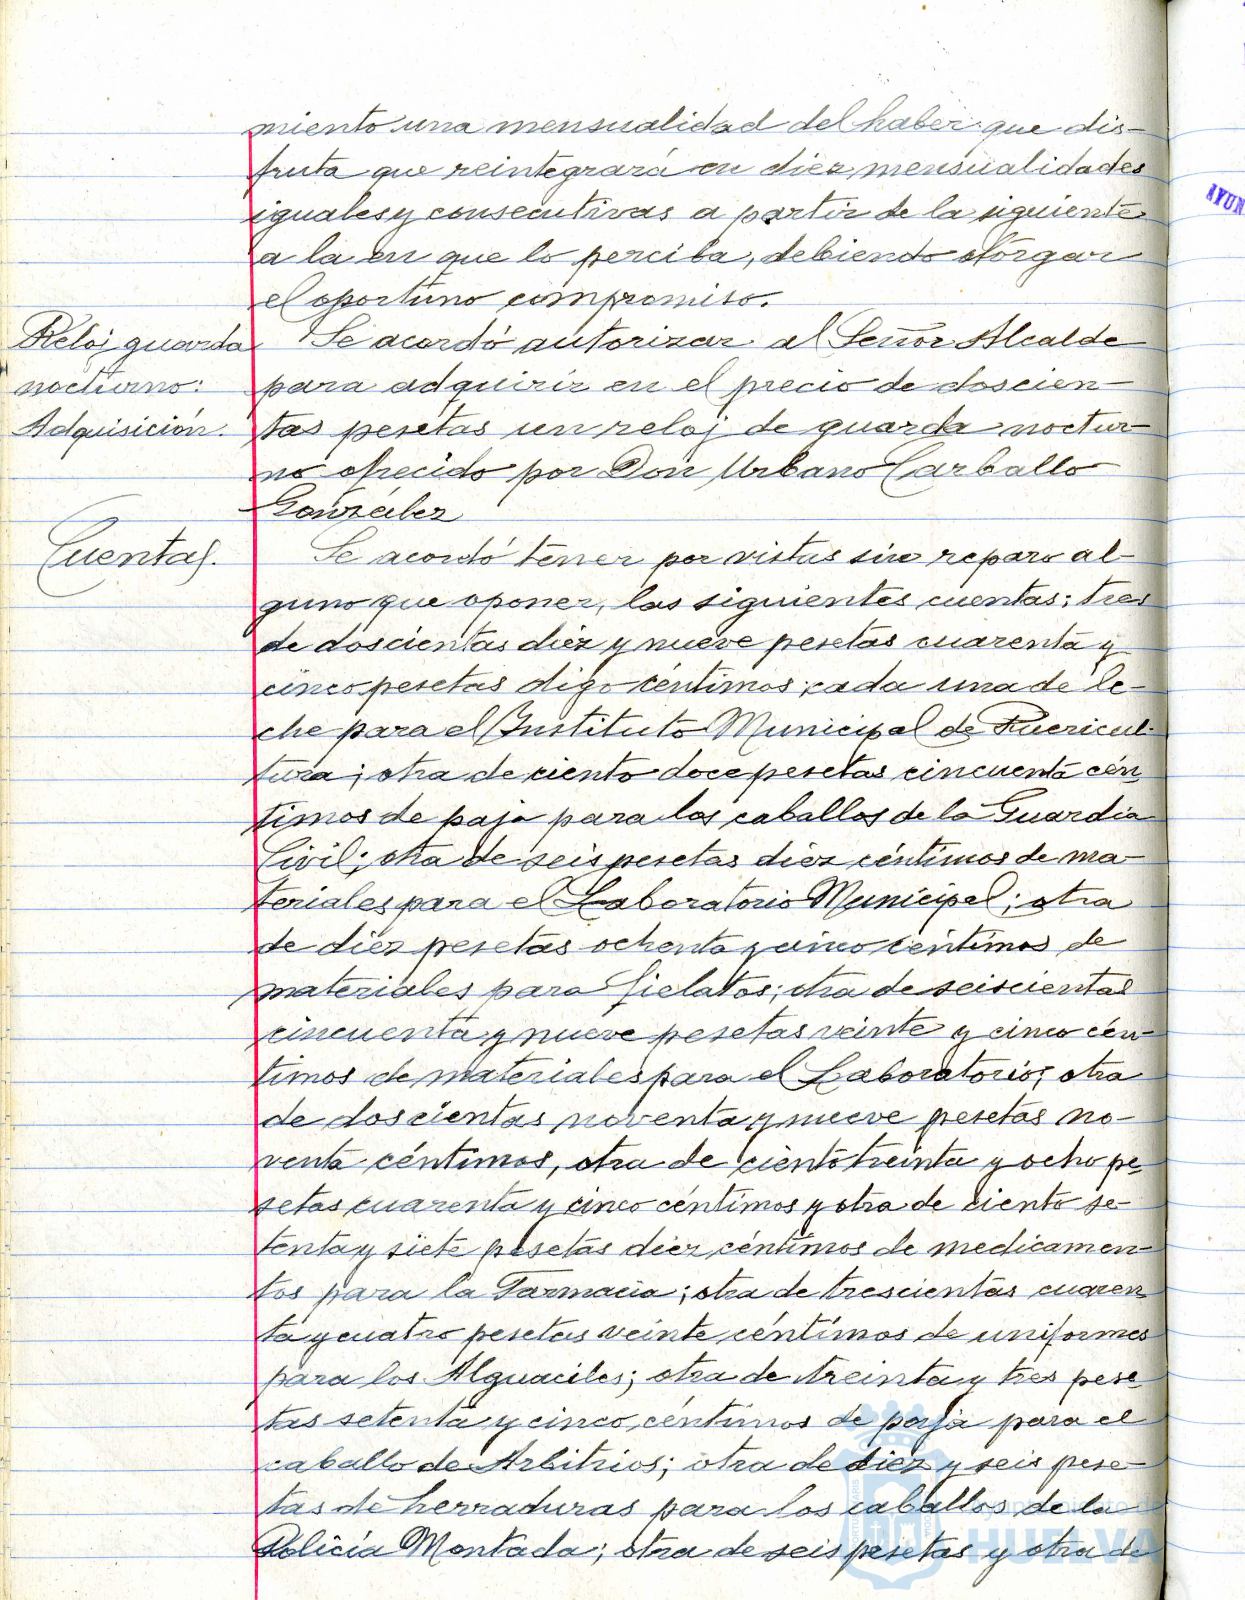 miento una mensualidad del haber que dis-
fruta que reintegrará en diez mensualidades
iguales y consecutivas a partir de la siguiente
a la en que lo perciba, debiendo otorgar
el oportuno compromiso.
Reloj guarda
nocturno:
Adquisición.
Se acordó autorizar al Señor Alcalde
para adquirir en el precio de doscien-
tas pesetas un reloj de guarda noctur-
no ofrecido por Don Urbano Carballo
González
Cuentas.
Se acordó tener por vistas sin reparo al-
guno que oponer, las siguientes cuentas; tres
de doscientas diez y nueve pesetas cuarenta y
cinco pesetas digo céntimos cada una de le-
che para el Instituto Municipal de Puericul-
tura; otra de ciento doce pesetas cincuenta cén
timos de paja para los caballos de la Guardia
Civil; otra de seis pesetas diez céntimos de ma-
teriales para el Laboratorio Municipal; otra
de diez pesetas ochenta y cinco céntimos de
materiales para fielatos; otra de seiscientas
cincuenta y nueve pesetas veinte y cinco cén-
timos de materiales para el Laboratorio; otra
de doscientas noventa y nueve pesetas no-
venta céntimos, otra de ciento treinta y ocho pe
setas cuarenta y cinco céntimos y otra de ciento se-
tenta y siete pesetas diez céntimos de medicamen-
tos para la Farmacia; otra de trescientas cuaren
ta y cuatro pesetas veinte céntimos de uniformes
para los Alguaciles; otra de treinta y tres pese
tas setenta y cinco céntimos de paja para el
caballo de Arbitrios; otra de diez y seis pese-
tas de herraduras para los caballos de la
Policía Montada; otra de seis pesetas y otra de
AYUN
HUELVA